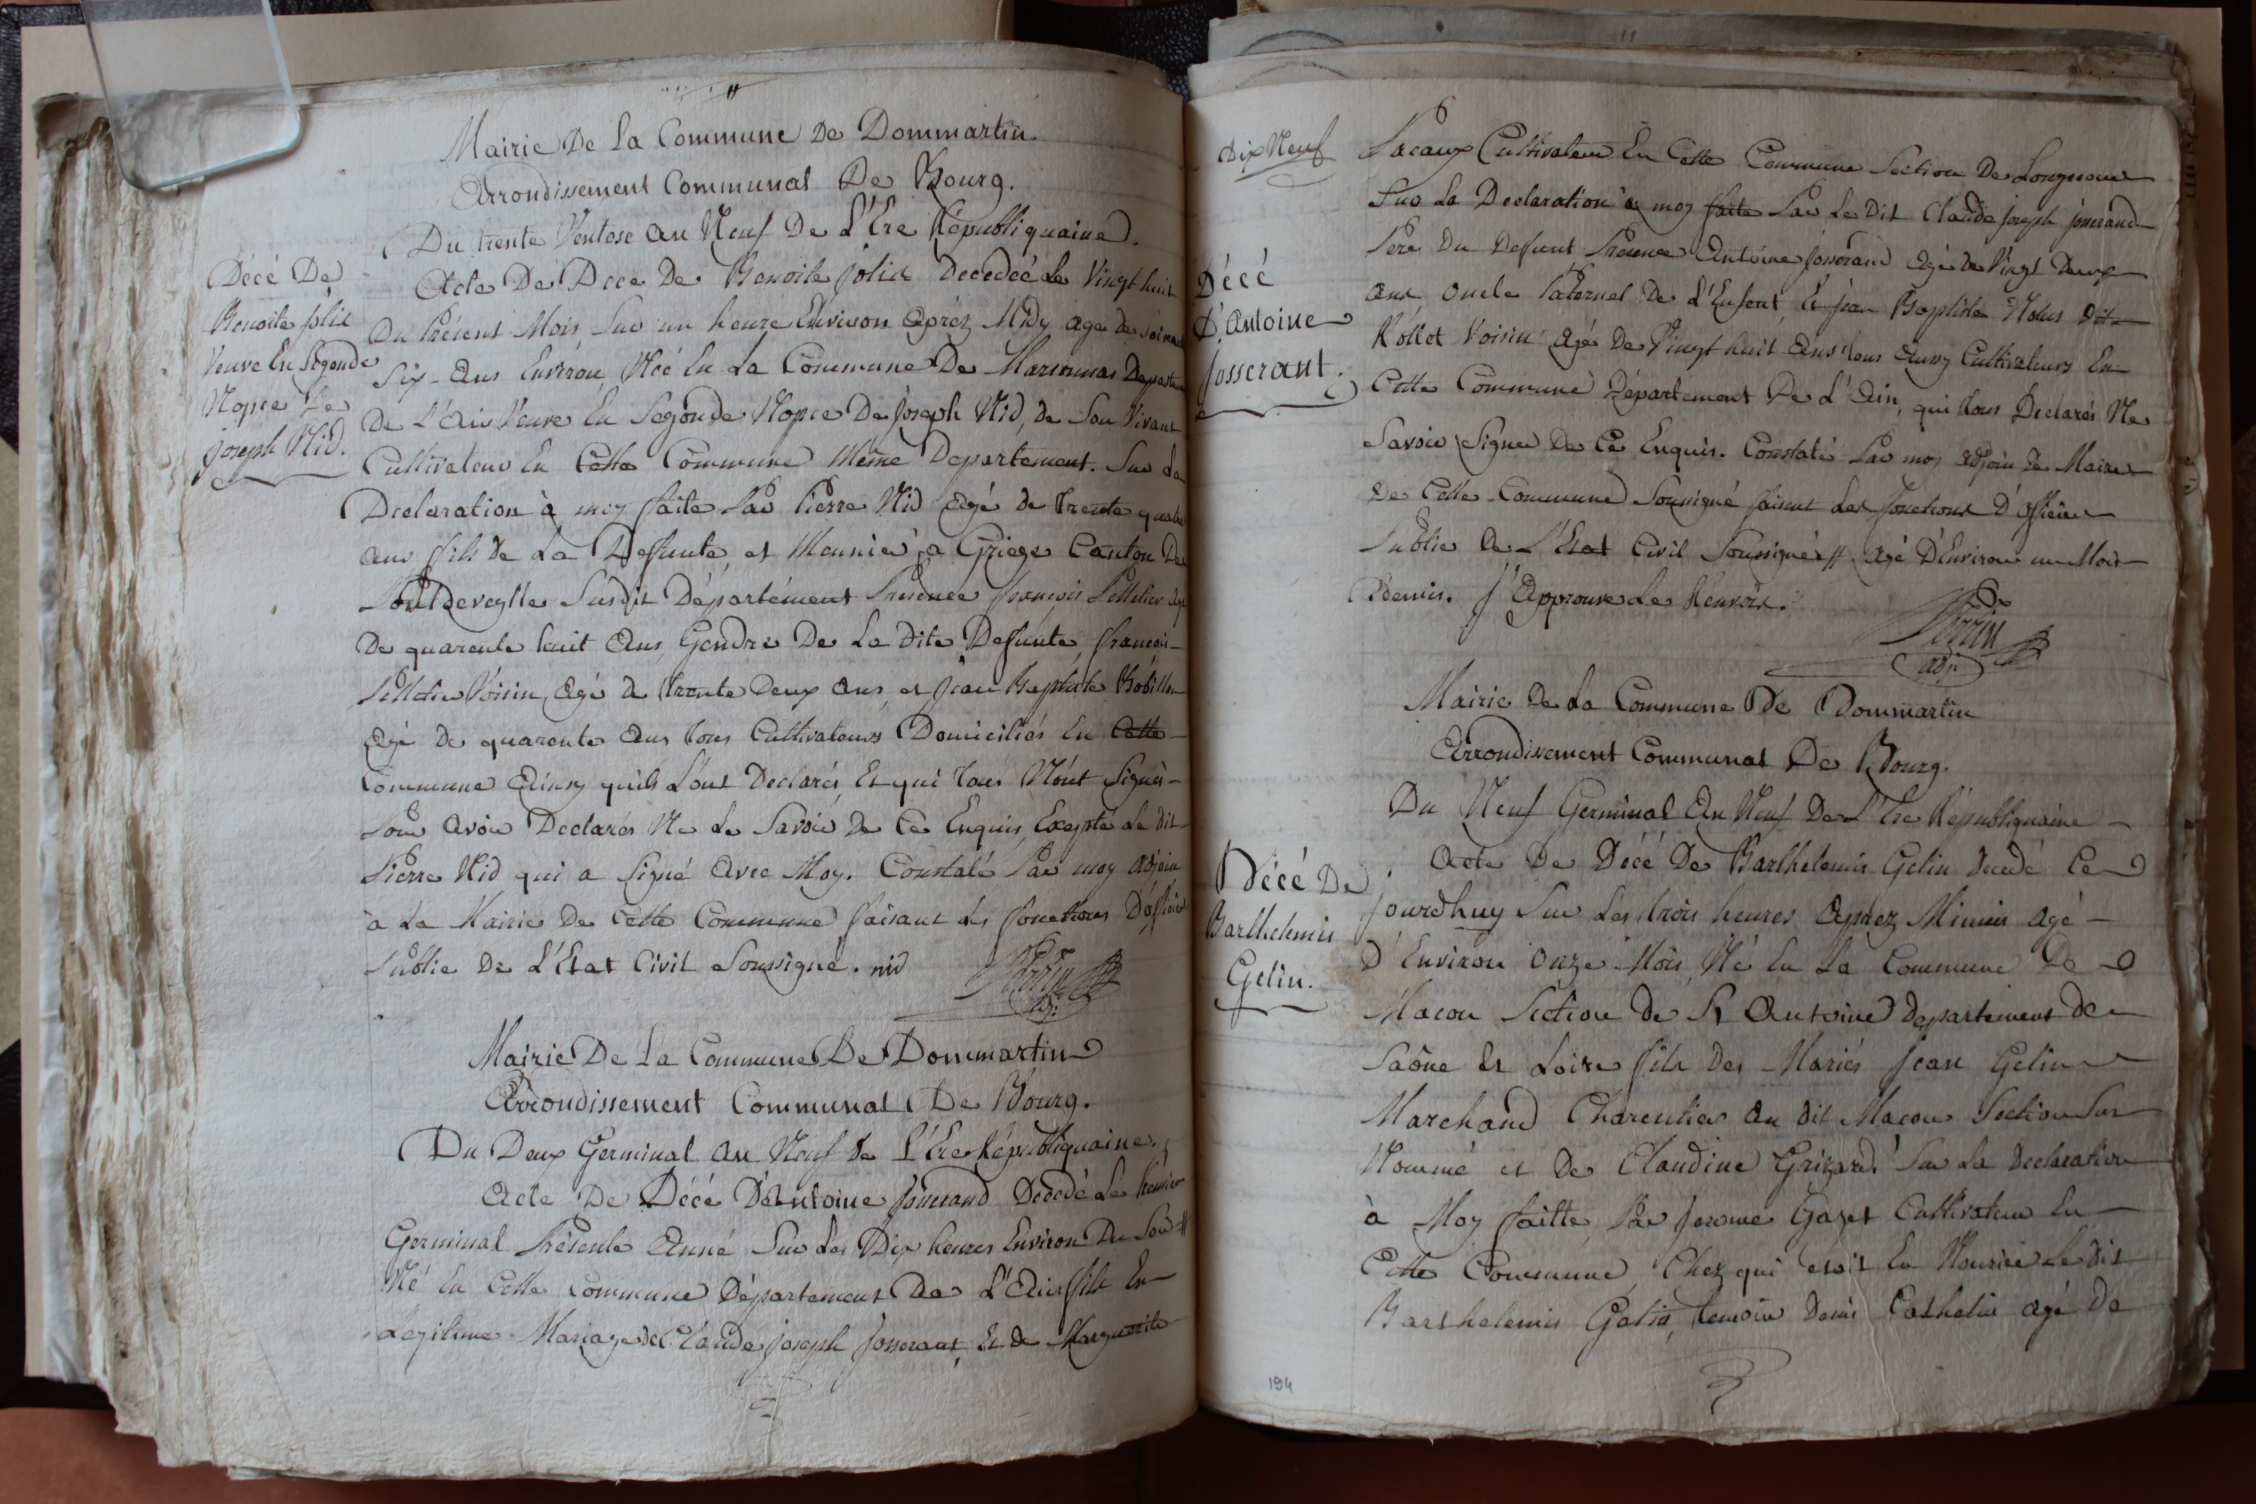 Mairie De la Commune De Dommartin
Arrondissement Communal De Bourg.
Du trente Ventose an Neuf De L'Ere Républiquaine.
Décé De
Benoite Jolie
Veuve En Segonde
Nopce De
Joseph Nid.
Acte De Dece De Benoite Jolie Decedeé Le Vingt huit
Du Présent Mois Sur un heure Environ Aprèz Midy agé de
Six Ans Environ Née En La Commune De Marsonnas Departem
De L'Ain Veuve En Segonde Nopce De Joseph Nid, de Son Vivant
Cultivateur En Cette Commune Même Departement. Sur La
Declaration à moy faite Par Pierre Nid Agé de trente quatre
ans fils de La Defunte, et Meunier a Griege Canton De
Pontdeveylle Susdit Département Présence françois Pelletier agé
De quarente huit Ans Gendre De La dite Defunte, françois
Pelletier Voisin, Agé de trente Deux Ans et Jean Baptiste Robillon
Agé de quarente Ans tous Cultivateurs Domiciliés En Cette
Commune Ainsy quils L'ont Declarés Et qui tous N'ont Signés
Pour avoir Declarés Ne Le Savoir De Ce Enquis, Excepté Le dit
Pierre Nid qui a Signé Avec Moy. Constaté Par moy Adjoin
a La Mairie De Cette Commune faisant Les fonctions D'officier
Public De L'Etat Civil Soussigné. nid
Perrin
adj.
Mairie De La Commune De Dommartin
Arrondissement Communal De Bourg.
Du Deux Germinal an Neuf De L'Ere Républiquaine.
Acte De Décé D'Antoine Josserand Decedé Le Premier
Germinal Présente Anné Sur Les Dix heures Environ Du Soir //
Né En Cette Commune Département De L'Ain fils En
Legitime Mariage de Claude Joseph Josserant, Et de Marguerite
Dix Neuf
Décé
D'Antoine
Josserant.
Pacaux Cultivateur En Cette Commune Section De Longueue
Sur La Declaration à moy faite Par Le Dit Claude Joseph Josserand
Pere Du Defunt Présence Antoine Josserand Agé De Vingt Deux
Ans Oncle Paternel De L'Enfent, Et Jean Baptiste Nolus dit
Rollet Voisin Agé De Vingt huit Ans tous Aussy Cultivateurs En
Cette Commune Département De L'Ain, qui tous Declarés Ne
Savoir Signer De Ce Enquis. Constaté Par moy adjoin De Maire
De Cette Commune Soussigné faisant Les fonctions D'officier
Public De L'Etat Civil Soussigné // Agé D'Environ un Mois
Demis. J'Approuve Le Renvois.
Perrin
adj.
Mairie De La Commune De Dommartin
Arrondissement Communal De Bourg.
Du Neuf Germinal An Neuf De L'Ere Républiquaine
Décé De
Barthelemis
Gelin.
Acte De Décé De Barthelemis Gelin Decedé Ce
Jourdhuy Sur Les trois heures Aprez Minuis agé
D'Environ Onze Mois Né En La Commune De
Macon Section De St Antoine departement De
Saône Et Loire fils Des Mariés Jean Gelin
Marchand Charcutier Au dit Macon Section Sur
Nommé et De Claudine Grizard. Sur La Declaration
à Moy faitte, Par Jerome Gazet Cultivateur En
Cette Commune, Chez qui etoit En Nourice Le dit
Barthelemis Gelin, temoin Denis Cathelin agé De
194